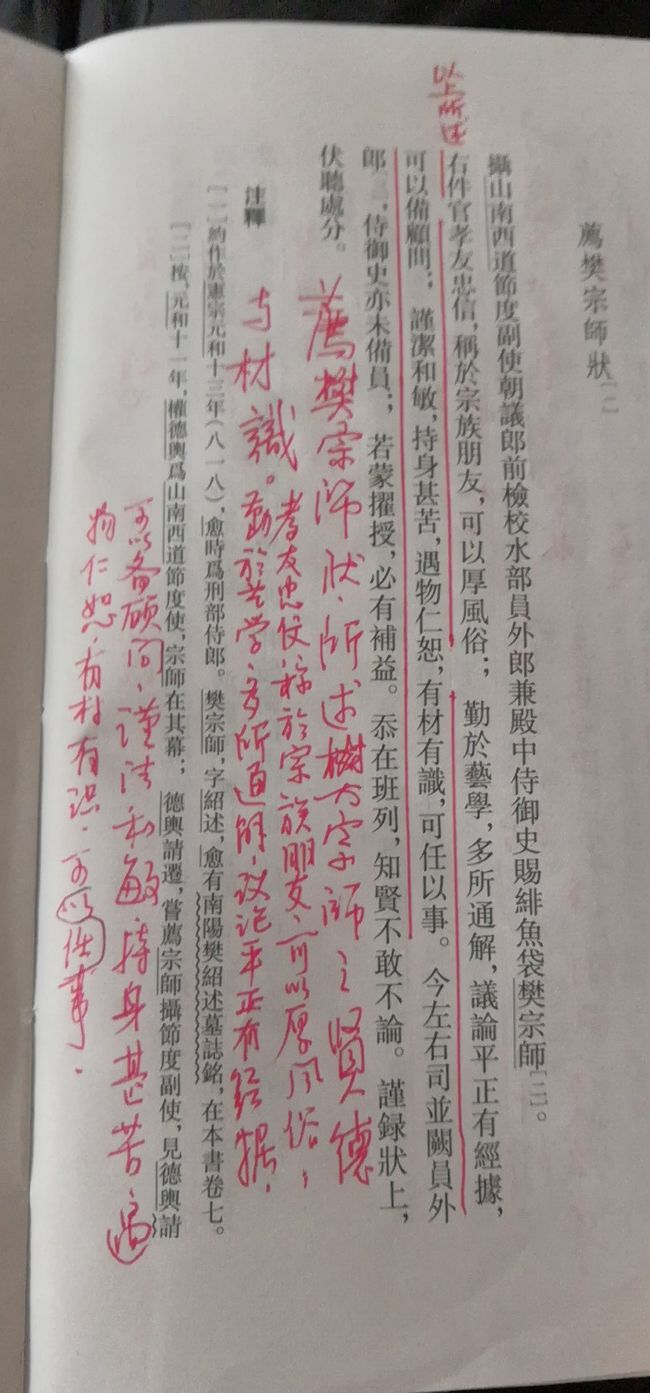 薦樊宗師狀〔一〕
攝山南西道節度副使朝議郎前檢校水部員外郎兼殿中侍御史賜緋魚袋樊宗師〔二〕。
以上所述
右件官孝友忠信，稱於宗族朋友，可以厚風俗；勤於藝學，多所通解，議論平正有經據，
可以備顧問；謹潔和敏，持身甚苦，遇物仁恕，有材有識，可任以事。今左右司並闕員外
郎，侍御史亦未備員；若蒙擢授，必有補益。忝在班列，知賢不敢不論。謹録狀上，
伏聽處分。
薦樊宗师狀，所述樹大宗师之賢德
与材識。
注釋
孝友忠信，称於宗族朋友，可以厚风俗，
勤於艺学，多所通解，议论平正有经据，
〔一〕約作於憲宗元和十三年（八一八），愈時爲刑部侍郎。樊宗師，字紹述，愈有南陽樊紹述墓誌銘，在本書卷七。
〔二〕按，元和十一年，權德輿爲山南西道節度使，宗師在其幕；德輿請遷，嘗薦宗師攝節度副使，見德輿請
可以备顾问，谨洁和敏，持身甚苦，遇
物仁恕，有材有识，可以任事。